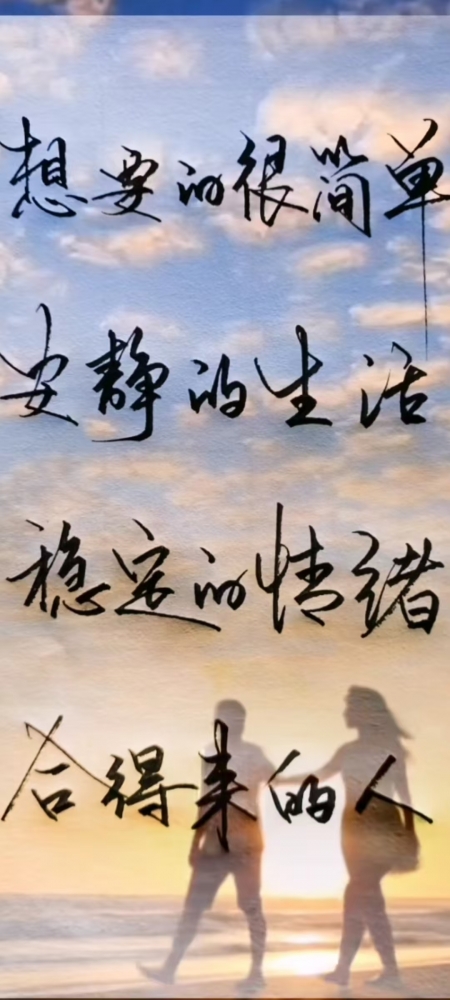 想要的很简单
安静的生活
稳定的情绪
合得来的人